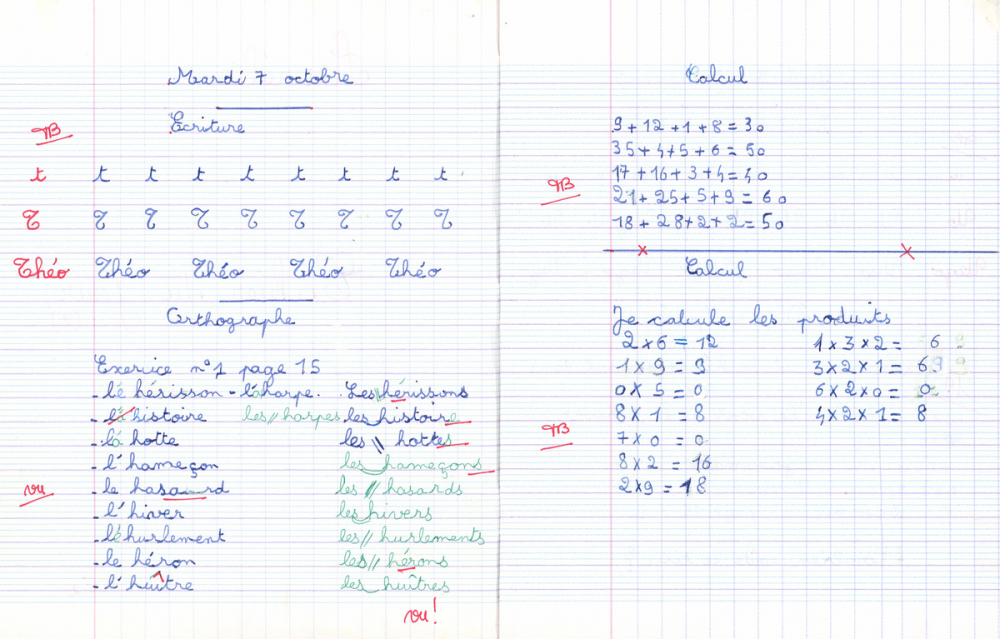 Mardi 7 octobre
Ecriture
TB
t t t t t t t t t
T T T T T T T T T
Théo Théo Théo Théo Théo
Orthographe
Exerice n°1 page 15
- le hérisson - la harpe. Les hérissons
- l'histoire les // harpes les histoire
- la hotte les \\ hottes
- l'hameçon les hameçons
- le hasard les // hasards
vu
- l'hiver les hivers
- le hurlement les // hurlements
- le héron les // hérons
- l'huître les huîtres
vu!
Calcul
9 + 12 + 1 + 8 = 30
35 + 4 + 5 + 6 = 50
17 + 16 + 3 + 4 = 40
TB
21 + 25 + 5 + 9 = 60
18 + 28 + 2 + 2 = 50
Calcul
Je calcule les produits
2 × 6 = 12 1 × 3 × 2 = 6
1 × 9 = 9 3 × 2 × 1 = 6
0 × 5 = 0 6 × 2 × 0 = 0
8 × 1 = 8 4 × 2 × 1 = 8
TB
7 × 0 = 0
8 × 2 = 16
2 × 9 = 18